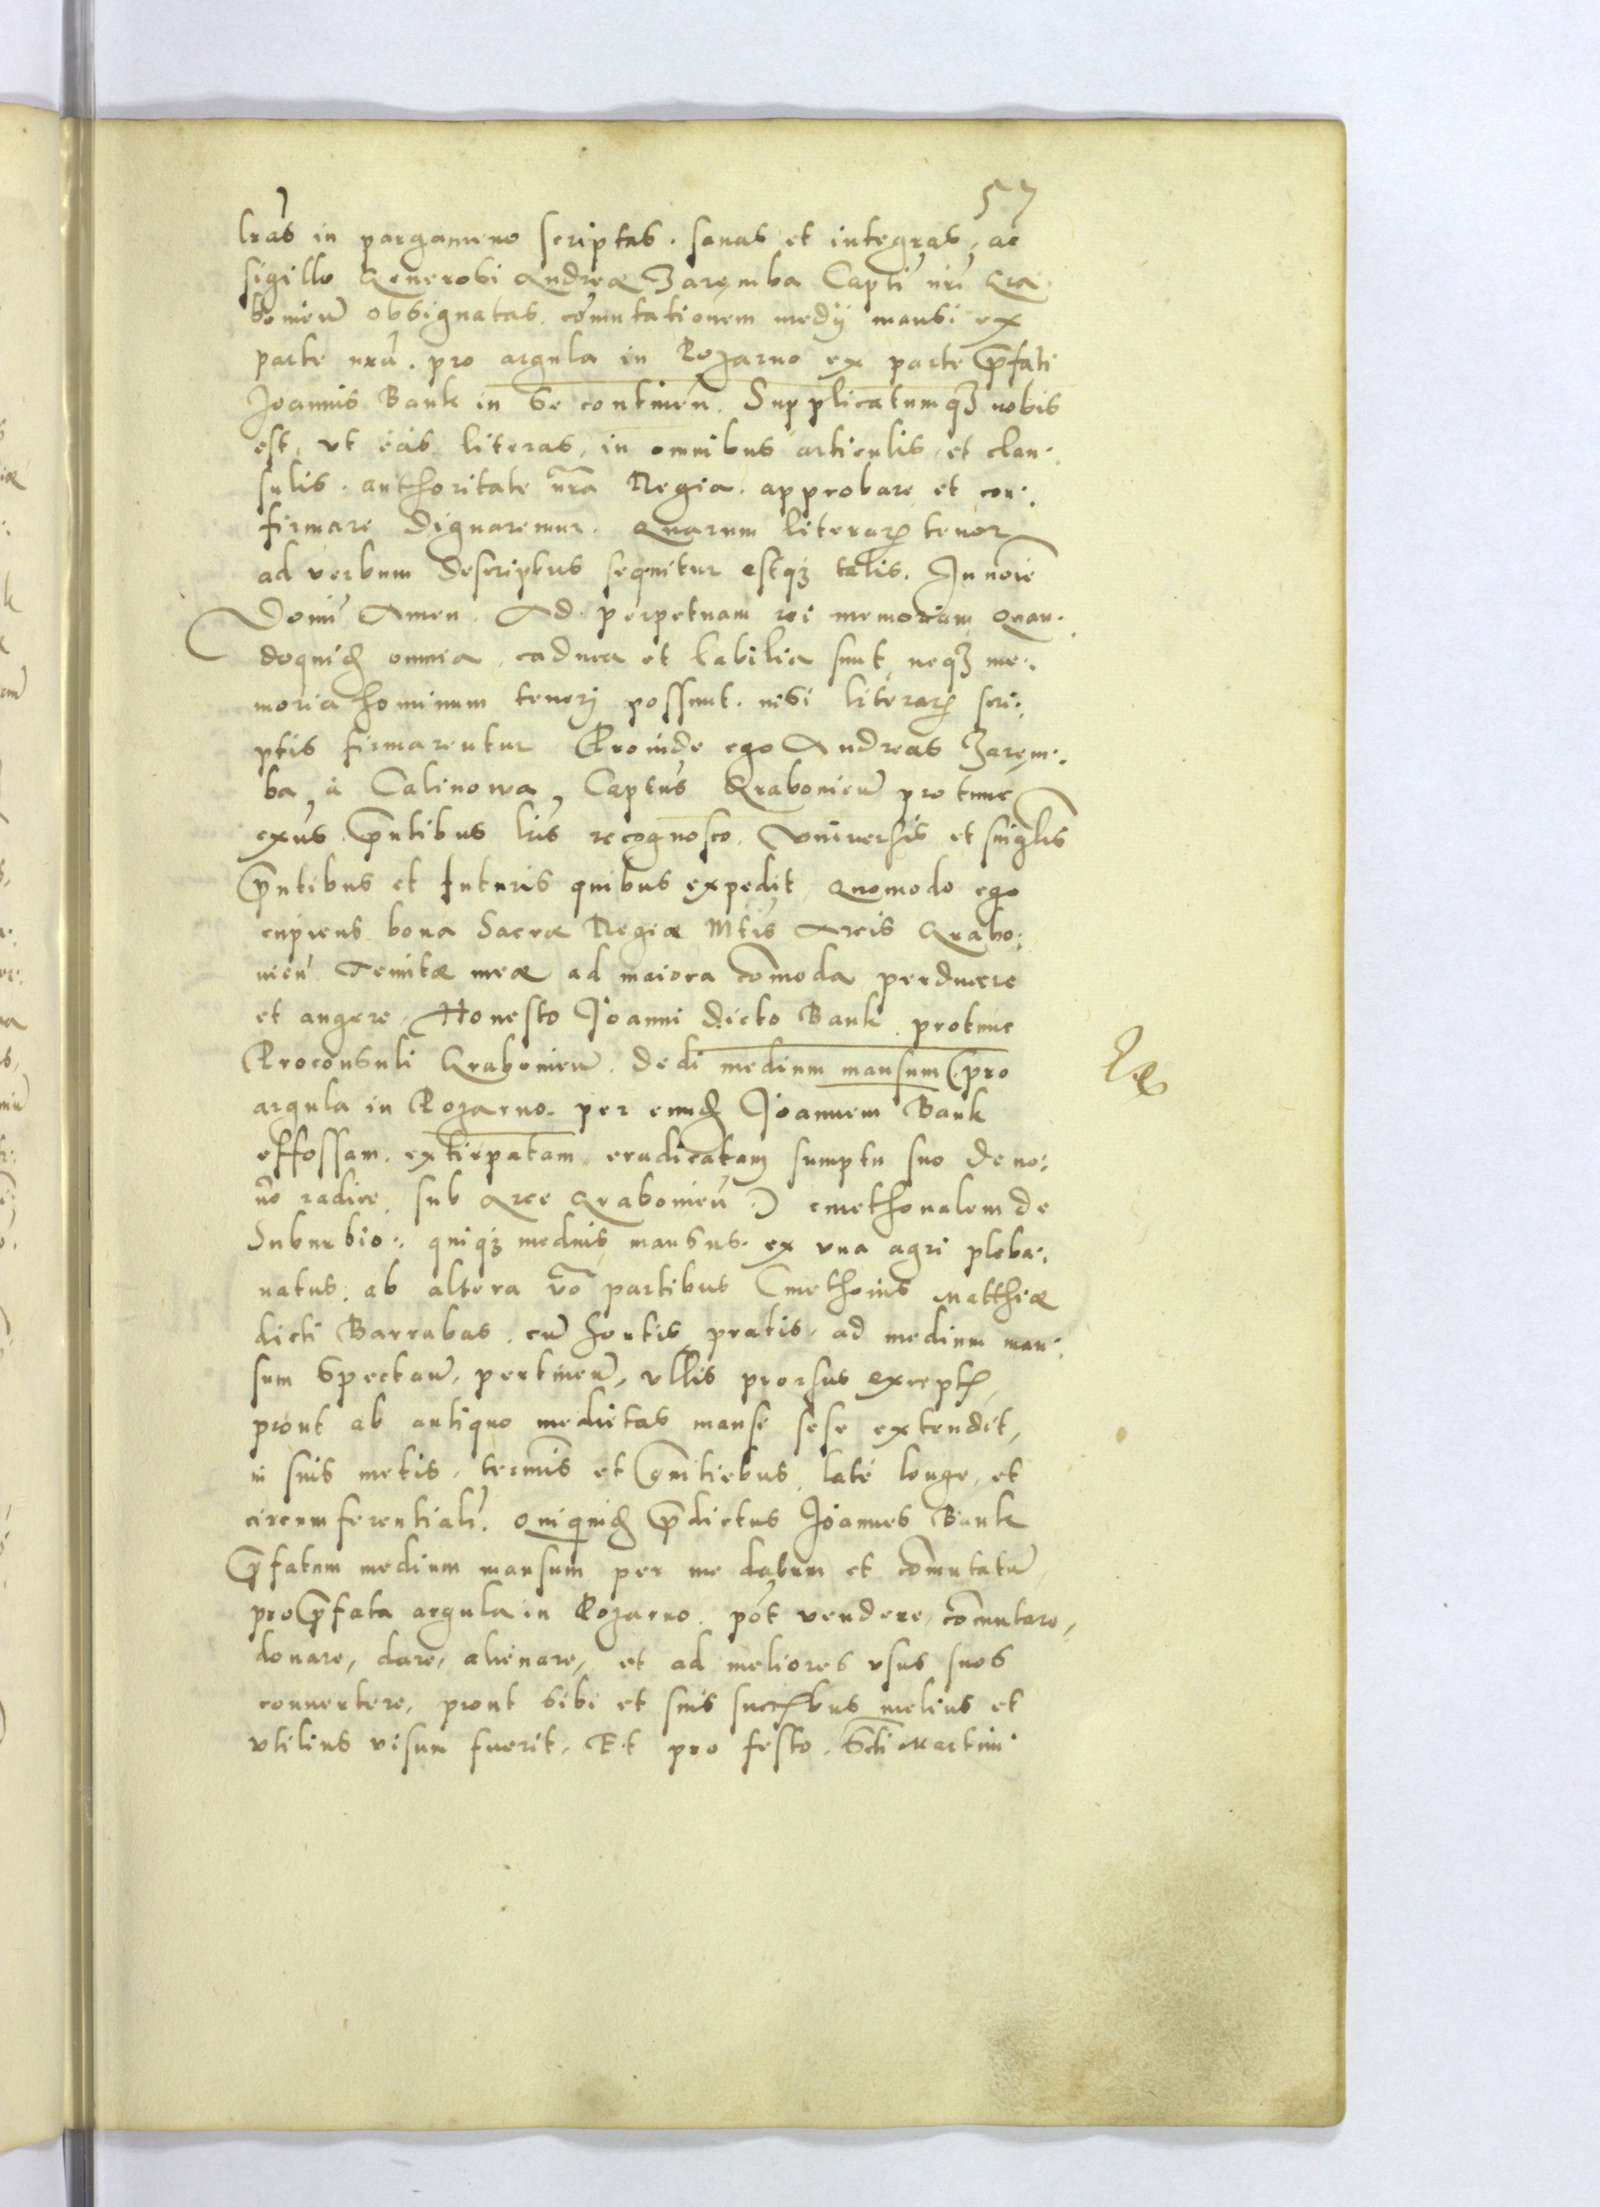 57
lras in pargameno scriptas. sanas et integras, ac
sigillo Generosi Andreæ Zaręmba Capti nri Gra
bonien obsignatas. comutationem medij mansi ex
parte nra. pro argula in Rozarno ex parte pfati
Joannis Bank in se continen. Supplicatumqȝ nobis
est, vt eas literas, in omnibus articulis, et clau:
sulis. authoritate nra Regia. approbare et con:
firmare dignaremur. Quarum literarꝝ tenor
ad verbum descriptus sequitur estqȝ talis. In noie
Domi Amen. Ad perpetuam rei memoriam Quan:
doquidꝫ omnia, caduca et labilia sunt, neqȝ me:
moria hominum teneri possunt. nisi literarꝝ scri:
ptis firmarentur Proinde ego Andreas Zaręm:
ba, à Calinowa, Captus Grabonien pro tunc
exns. pntibus lris recognosco. Vniuersis et singlis
pntibus et futuris quibus expedit, Quomodo ego
cupiens bona Sacræ Regiæ Mtis Arcis Grabo:
nien Tenutæ meæ ad maiora comoda perducere
et augere, Honesto Joanni dicto Bank protunc
Proconsuli Grabonien. dedi medium mansum (pro
argula in Rozarno. per eundꝫ Joannem Bank
effossam. extirpatam, eradicatam sumptu suo de no:
uo radice, sub Arce Grabonien) cmethonalem de
Suburbio:. quiqȝ medius mansus. ex vna agri pleba:
natus. ab altera vo partibus Cmethonis Matthiæ
dicti Barrabas. cu hortis, pratis, ad medium man:
sum spectan, pertinen, vllis prorsus exceptꝭ,
prout ab antiquo medietas mansi sese extendit,
in suis metis, termis et gnitiebus, late longe, et
circumferentialr. Quiquidꝫ pdictus Joannes Bank
pfatum medium mansum per me datum et comutatu
pro pfata argula in Rozarno. pot vendere, comutare,
donare, dare, alienare, et ad meliores vsus suos
conuertere, prout sibi et suis succꝭbus melius et
vtilius visum fuerit, Et pro festo. Scti Martini